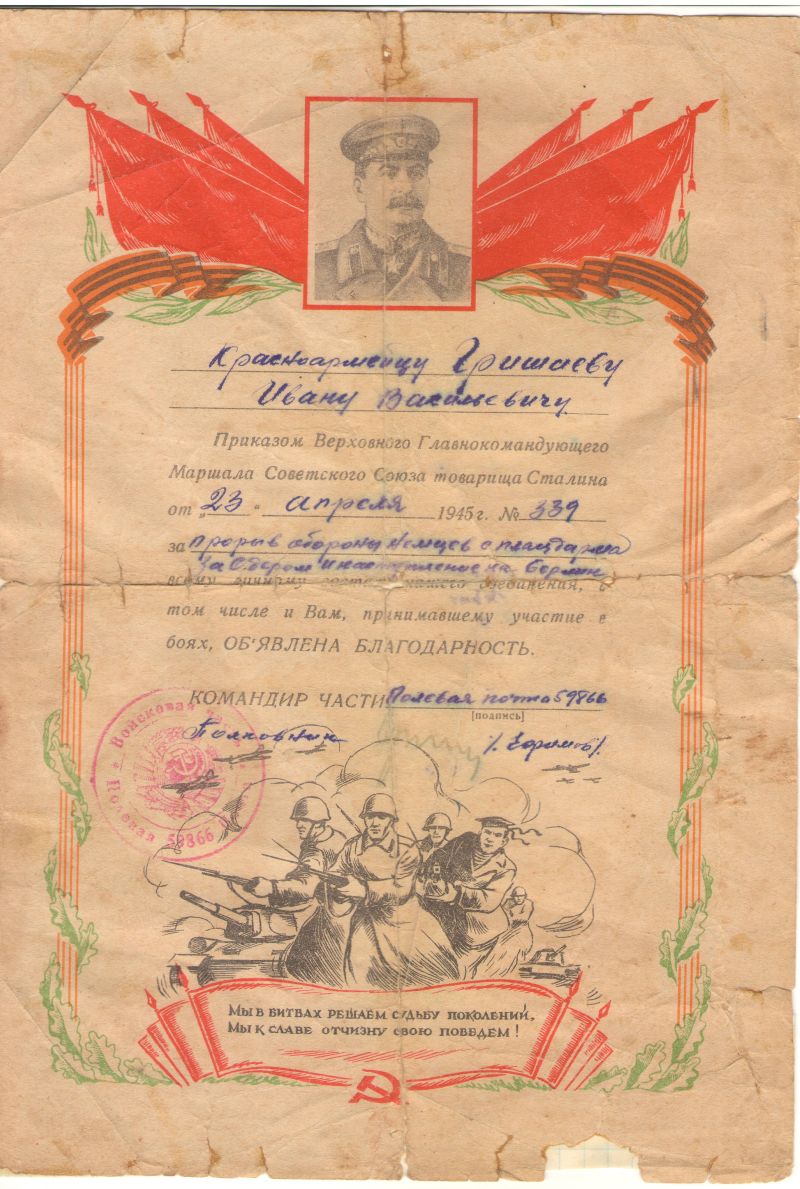 Красноармейцу Гришаеву
Ивану Васильевичу
Приказом Верховного Главнокомандующего
Маршала Советского Союза товарища Сталина
от „23“ апреля 1945 г. № 339
за прорыв обороны немцев с плацдарма
за Одером и наступление на Берлин
всему личному составу нашего соединения, в
том числе и Вам, принимавшему участие в
боях, ОБ'ЯВЛЕНА БЛАГОДАРНОСТЬ.
КОМАНДИР ЧАСТИ Полевая почта 59866
[подпись]
Полковник /Ефимов/.
Войсковая часть
Полевая 59866
МЫ В БИТВАХ РЕШАЕМ СУДЬБУ ПОКОЛЕНИЙ,
МЫ К СЛАВЕ ОТЧИЗНУ СВОЮ ПОВЕДЕМ!